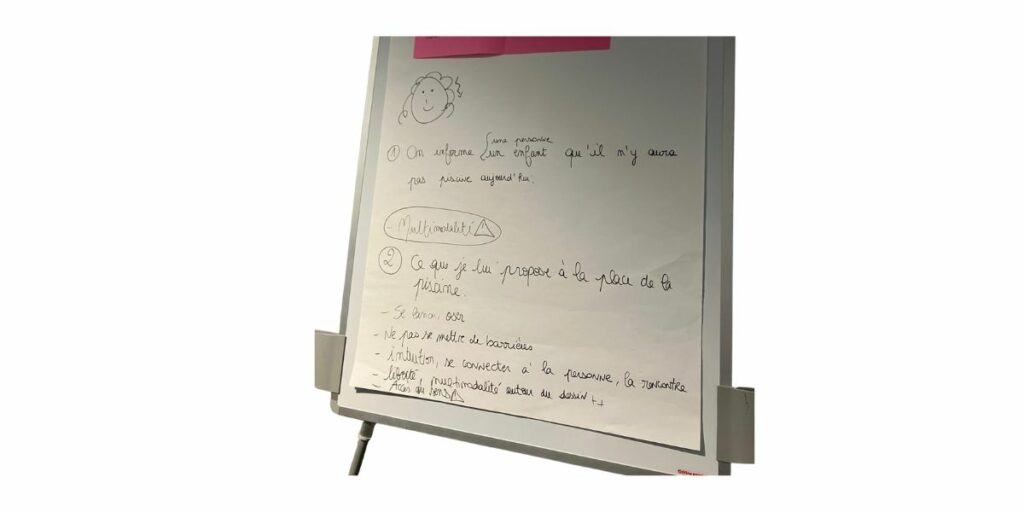 une personne
① On informe { un enfant qu'il n'y aura
pas piscine aujourd'hui.
- Multimodalité
② Ce que je lui propose à la place de la
piscine.
- Se lancer, oser
- Ne pas se mettre de barrières
- intuition, se connecter à la personne, la rencontre
- liberté, multimodalité autour du dessin ++
- Accès au sens